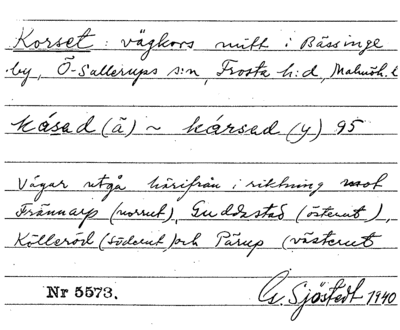 Korset : vägkors mitt i Bässinge
by, Ö-Sallerups s:n, Frosta h:d, Malmöh. l
kásad (ä) ~ kársad (y) 95
Vägar utgå härifrån i riktning mot
Frännarp (norrut), Guddastad (österut),
Kölleröd (söderut) och Pärup (västerut
Nr 5573.
G. Sjöstedt 1940